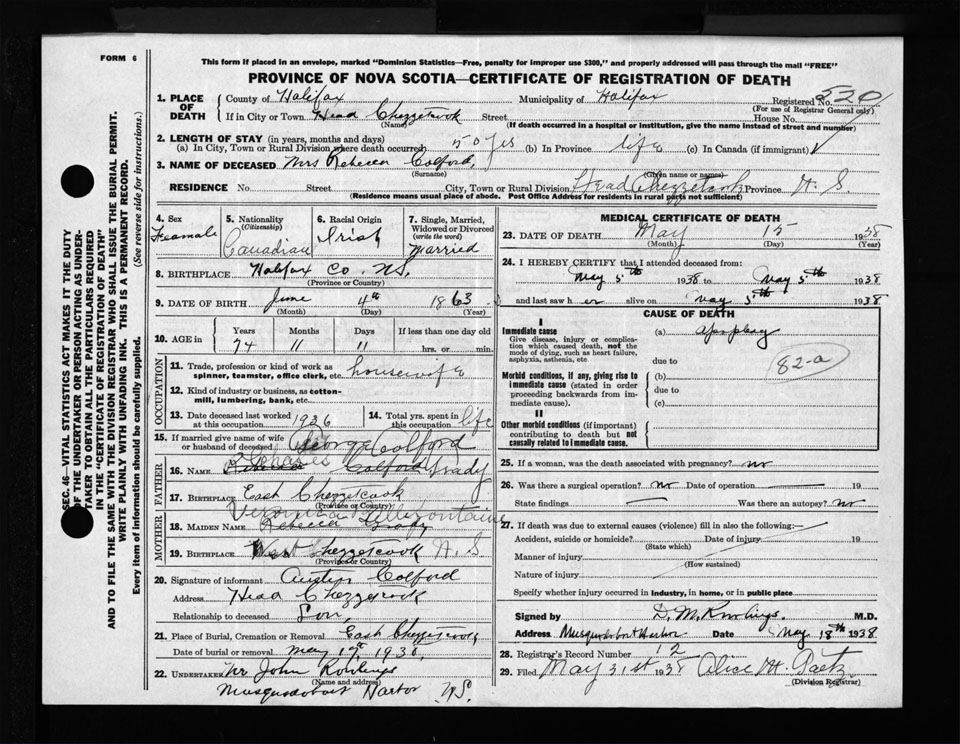 FORM 6
This form if placed in an envelope, marked "Dominion Statistics—Free, penalty for improper use $300," and properly addressed will pass through the mail "FREE"
PROVINCE OF NOVA SCOTIA—CERTIFICATE OF REGISTRATION OF DEATH
SEC. 46—VITAL STATISTICS ACT MAKES IT THE DUTY
OF THE UNDERTAKER OR PERSON ACTING AS UNDER-
TAKER TO OBTAIN ALL THE PARTICULARS REQUIRED
IN THE "CERTIFICATE OF REGISTRATION OF DEATH"
AND TO FILE THE SAME WITH THE DIVISION REGISTRAR WHO SHALL ISSUE THE BURIAL PERMIT.
WRITE PLAINLY WITH UNFADING INK. THIS IS A PERMANENT RECORD.
Every item of information should be carefully supplied. (See reverse side for instructions.)
1. PLACE OF DEATH
County of Halifax Municipality of Halifax Registered No. 520
(For use of Registrar General only)
If in City or Town Head Chezzetcook Street House No.
(Name) (If death occurred in a hospital or institution, give the name instead of street and number)
2. LENGTH OF STAY (in years, months and days)
(a) In City, Town or Rural Division where death occurred 50 yrs (b) In Province life (c) In Canada (if immigrant)
3. NAME OF DECEASED Mrs Rebecca Colford,
(Surname) (Given name or names)
RESIDENCE No. Street City, Town or Rural Division Head Chezzetcook Province N. S.
(Residence means usual place of abode. Post Office Address for residents in rural parts not sufficient)
4. Sex Feamale
5. Nationality (Citizenship) Canadian
6. Racial Origin Irish
7. Single, Married, Widowed or Divorced (write the word) Married
8. BIRTHPLACE Halifax Co. N.S.
(Province or Country)
9. DATE OF BIRTH June 4th 1863
(Month) (Day) (Year)
10. AGE in Years Months Days If less than one day old
74 11 11 hrs. or min.
OCCUPATION
11. Trade, profession or kind of work as spinner, teamster, office clerk, etc. housewife
12. Kind of industry or business, as cotton-mill, lumbering, bank, etc.
13. Date deceased last worked at this occupation 1936
14. Total yrs. spent in this occupation life
15. If married give name of wife or husband of deceased George Colford
FATHER
16. NAME Colford Grady
17. BIRTHPLACE East Chezzetcook
(Province or Country)
MOTHER
Veronica Bellefontaine
18. MAIDEN NAME Rebecca Grady
19. BIRTHPLACE West Chezzetcook N. S.
(Province or Country)
20. Signature of informant Austin Colford
Address Head Chezzetcook
Relationship to deceased Son,
21. Place of Burial, Cremation or Removal East Chezzetcook
Date of burial or removal May 17th 1938,
22. UNDERTAKER Mr John Rowlings
Musquodoboit Harbor N.S.
MEDICAL CERTIFICATE OF DEATH
23. DATE OF DEATH May 15 1938
(Month) (Day) (Year)
24. I HEREBY CERTIFY that I attended deceased from:
May 5th 1938 to May 5th 1938
and last saw her alive on May 5th 1938
CAUSE OF DEATH
I
Immediate cause
Give disease, injury or complication which caused death, not the mode of dying, such as heart failure, asphyxia, asthenia, etc
(a) Apoplexy
due to
82-a
Morbid conditions, if any, giving rise to immediate cause (stated in order proceeding backwards from immediate cause).
(b)
due to
(c)
II
Other morbid conditions (if important) contributing to death but not causally related to immediate cause.
25. If a woman, was the death associated with pregnancy? no
26. Was there a surgical operation? no Date of operation 19
State findings Was there an autopsy? no
27. If death was due to external causes (violence) fill in also the following:—
Accident, suicide or homicide? Date of injury 19
(State which)
Manner of injury
(How sustained)
Nature of injury
Specify whether injury occurred in industry, in home, or in public place
Signed by D. M. Rowlings. M.D.
Address Musquodoboit Harbor Date May 18th 1938
28. Registrar's Record Number 12
29. Filed May 31st 1938 Alice H. Paetz
(Division Registrar)